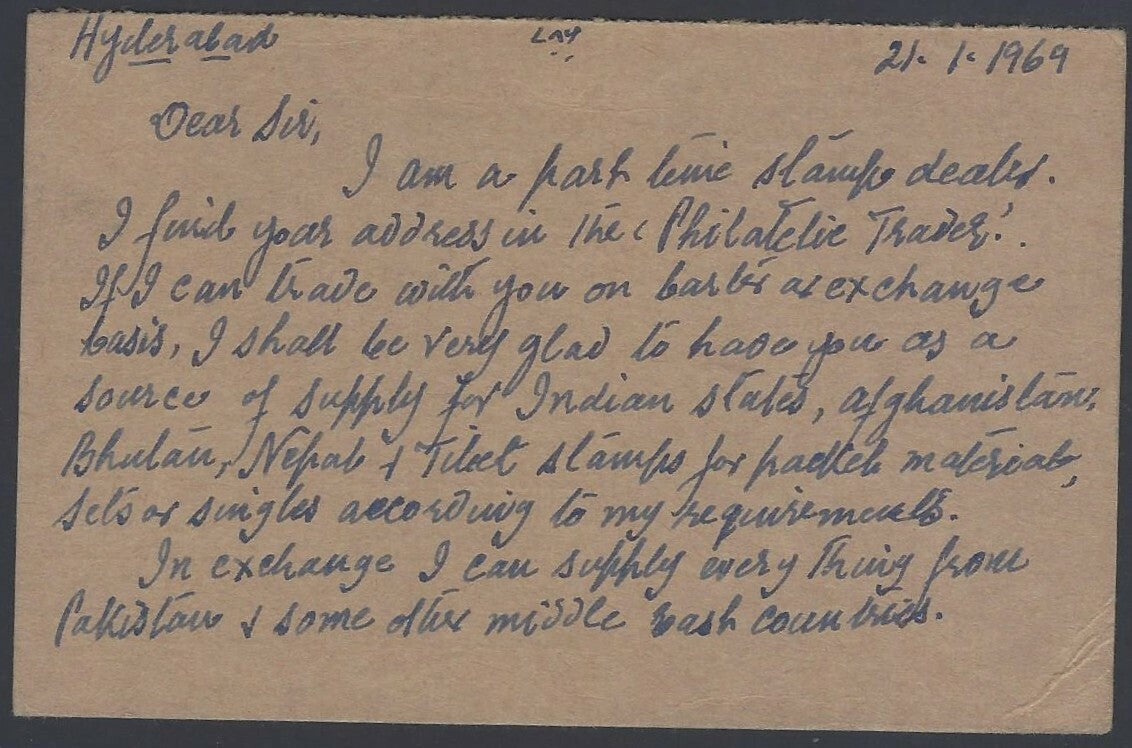 Hyderabad 21. 1. 1969
Dear Sir,
I am a part time stamp dealer.
I find your address in the 'Philatelic Trader'.
If I can trade with you on barter or exchange
basis, I shall be very glad to have you as a
source of supply for Indian states, Afghanistan,
Bhutan, Nepal & Tibet stamps for packet material,
sets or singles according to my requirements.
In exchange I can supply every thing from
Pakistan & some other middle east countries.